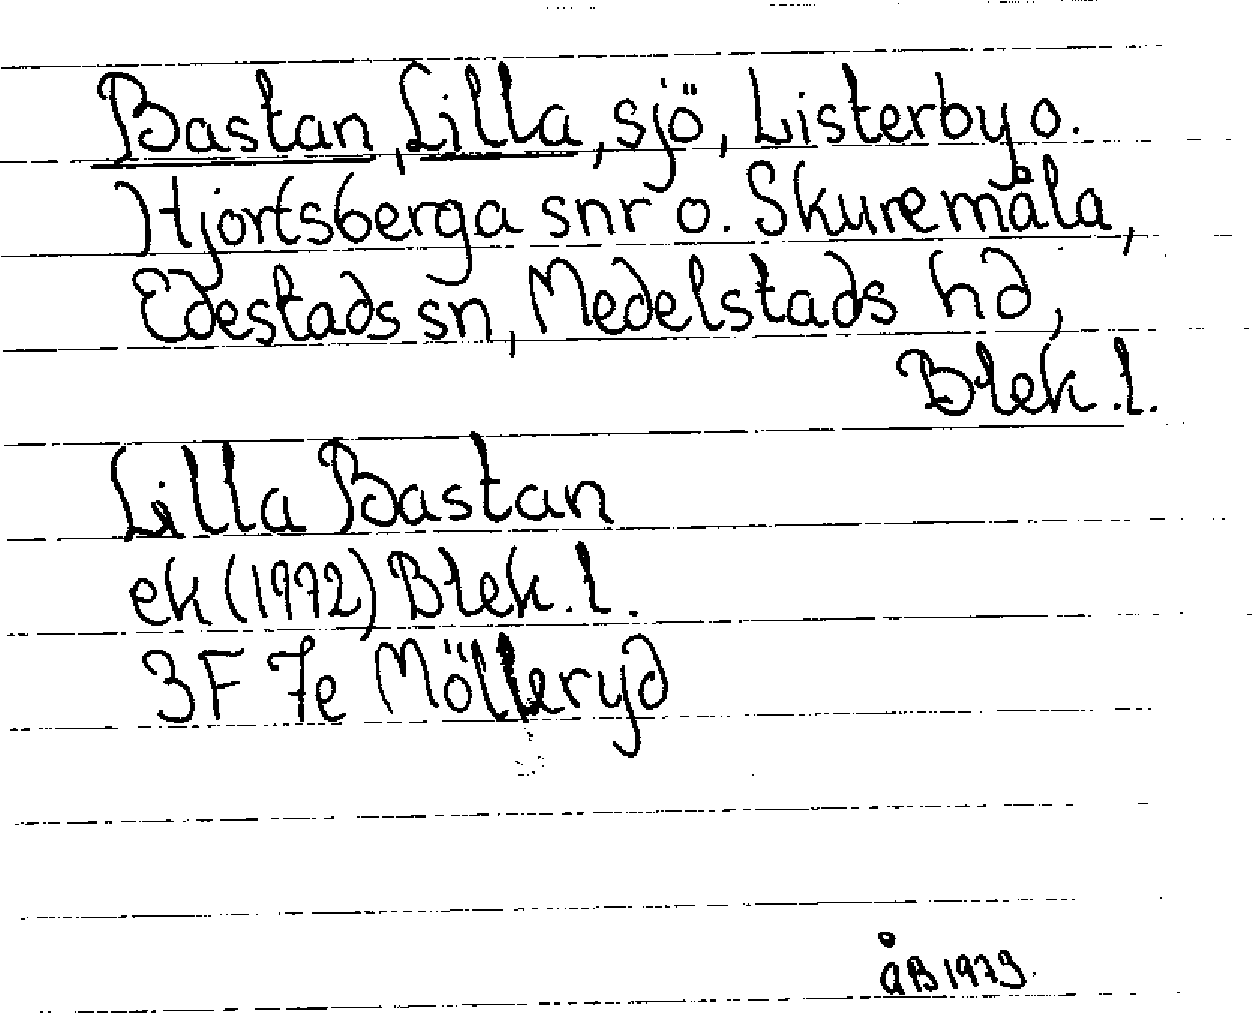 Bastan, Lilla, sjö, Listerby o.
Hjortsberga snr o. Skuremåla,
Edestads sn, Medelstads hd,
Blek. l.
Lilla Bastan
ek (1972) Blek. l.
3F 7e Mölleryd
åB 1979.